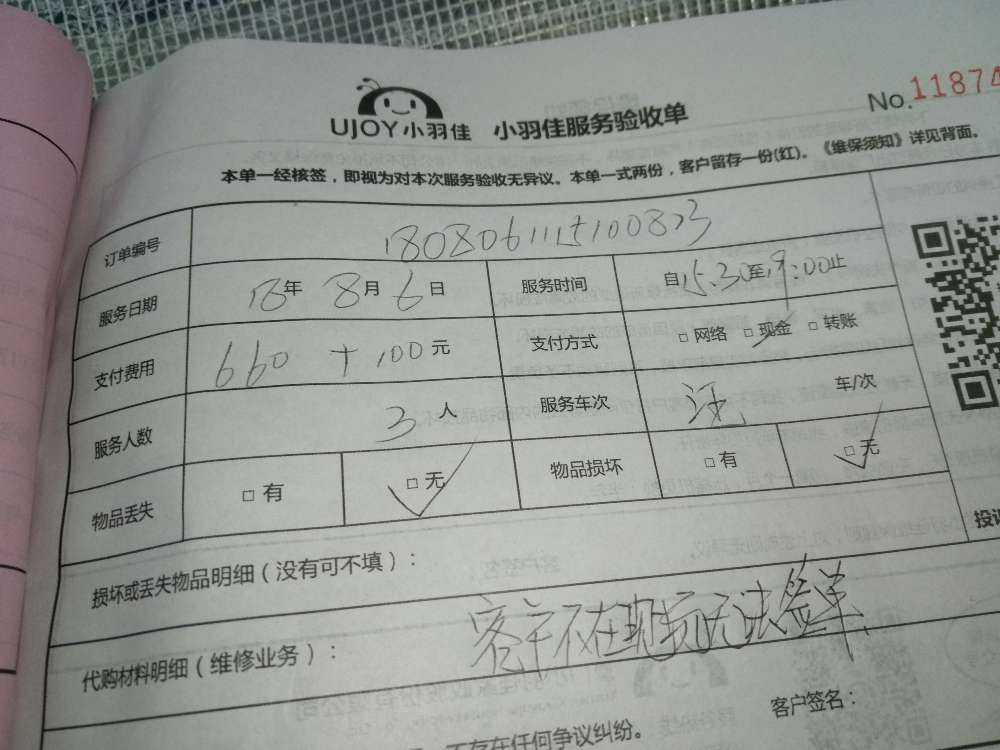 UJOY小羽佳 小羽佳服务验收单 No.11874
本单一经核签，即视为对本次服务验收无异议。本单一式两份，客户留存一份(红)。《维保须知》详见背面。
订单编号 18080611125100823
服务日期 18年 8月 6日 服务时间 自15:30至19:00止
支付费用 660 + 100元 支付方式 □网络 □现金 □转账
服务人数 3人 服务车次 车/次
物品丢失 □有 □无 物品损坏 □有 □无
损坏或丢失物品明细（没有可不填）：
代购材料明细（维修业务）： 客户不在现场无法签单
不存在任何争议纠纷。 客户签名：
投诉